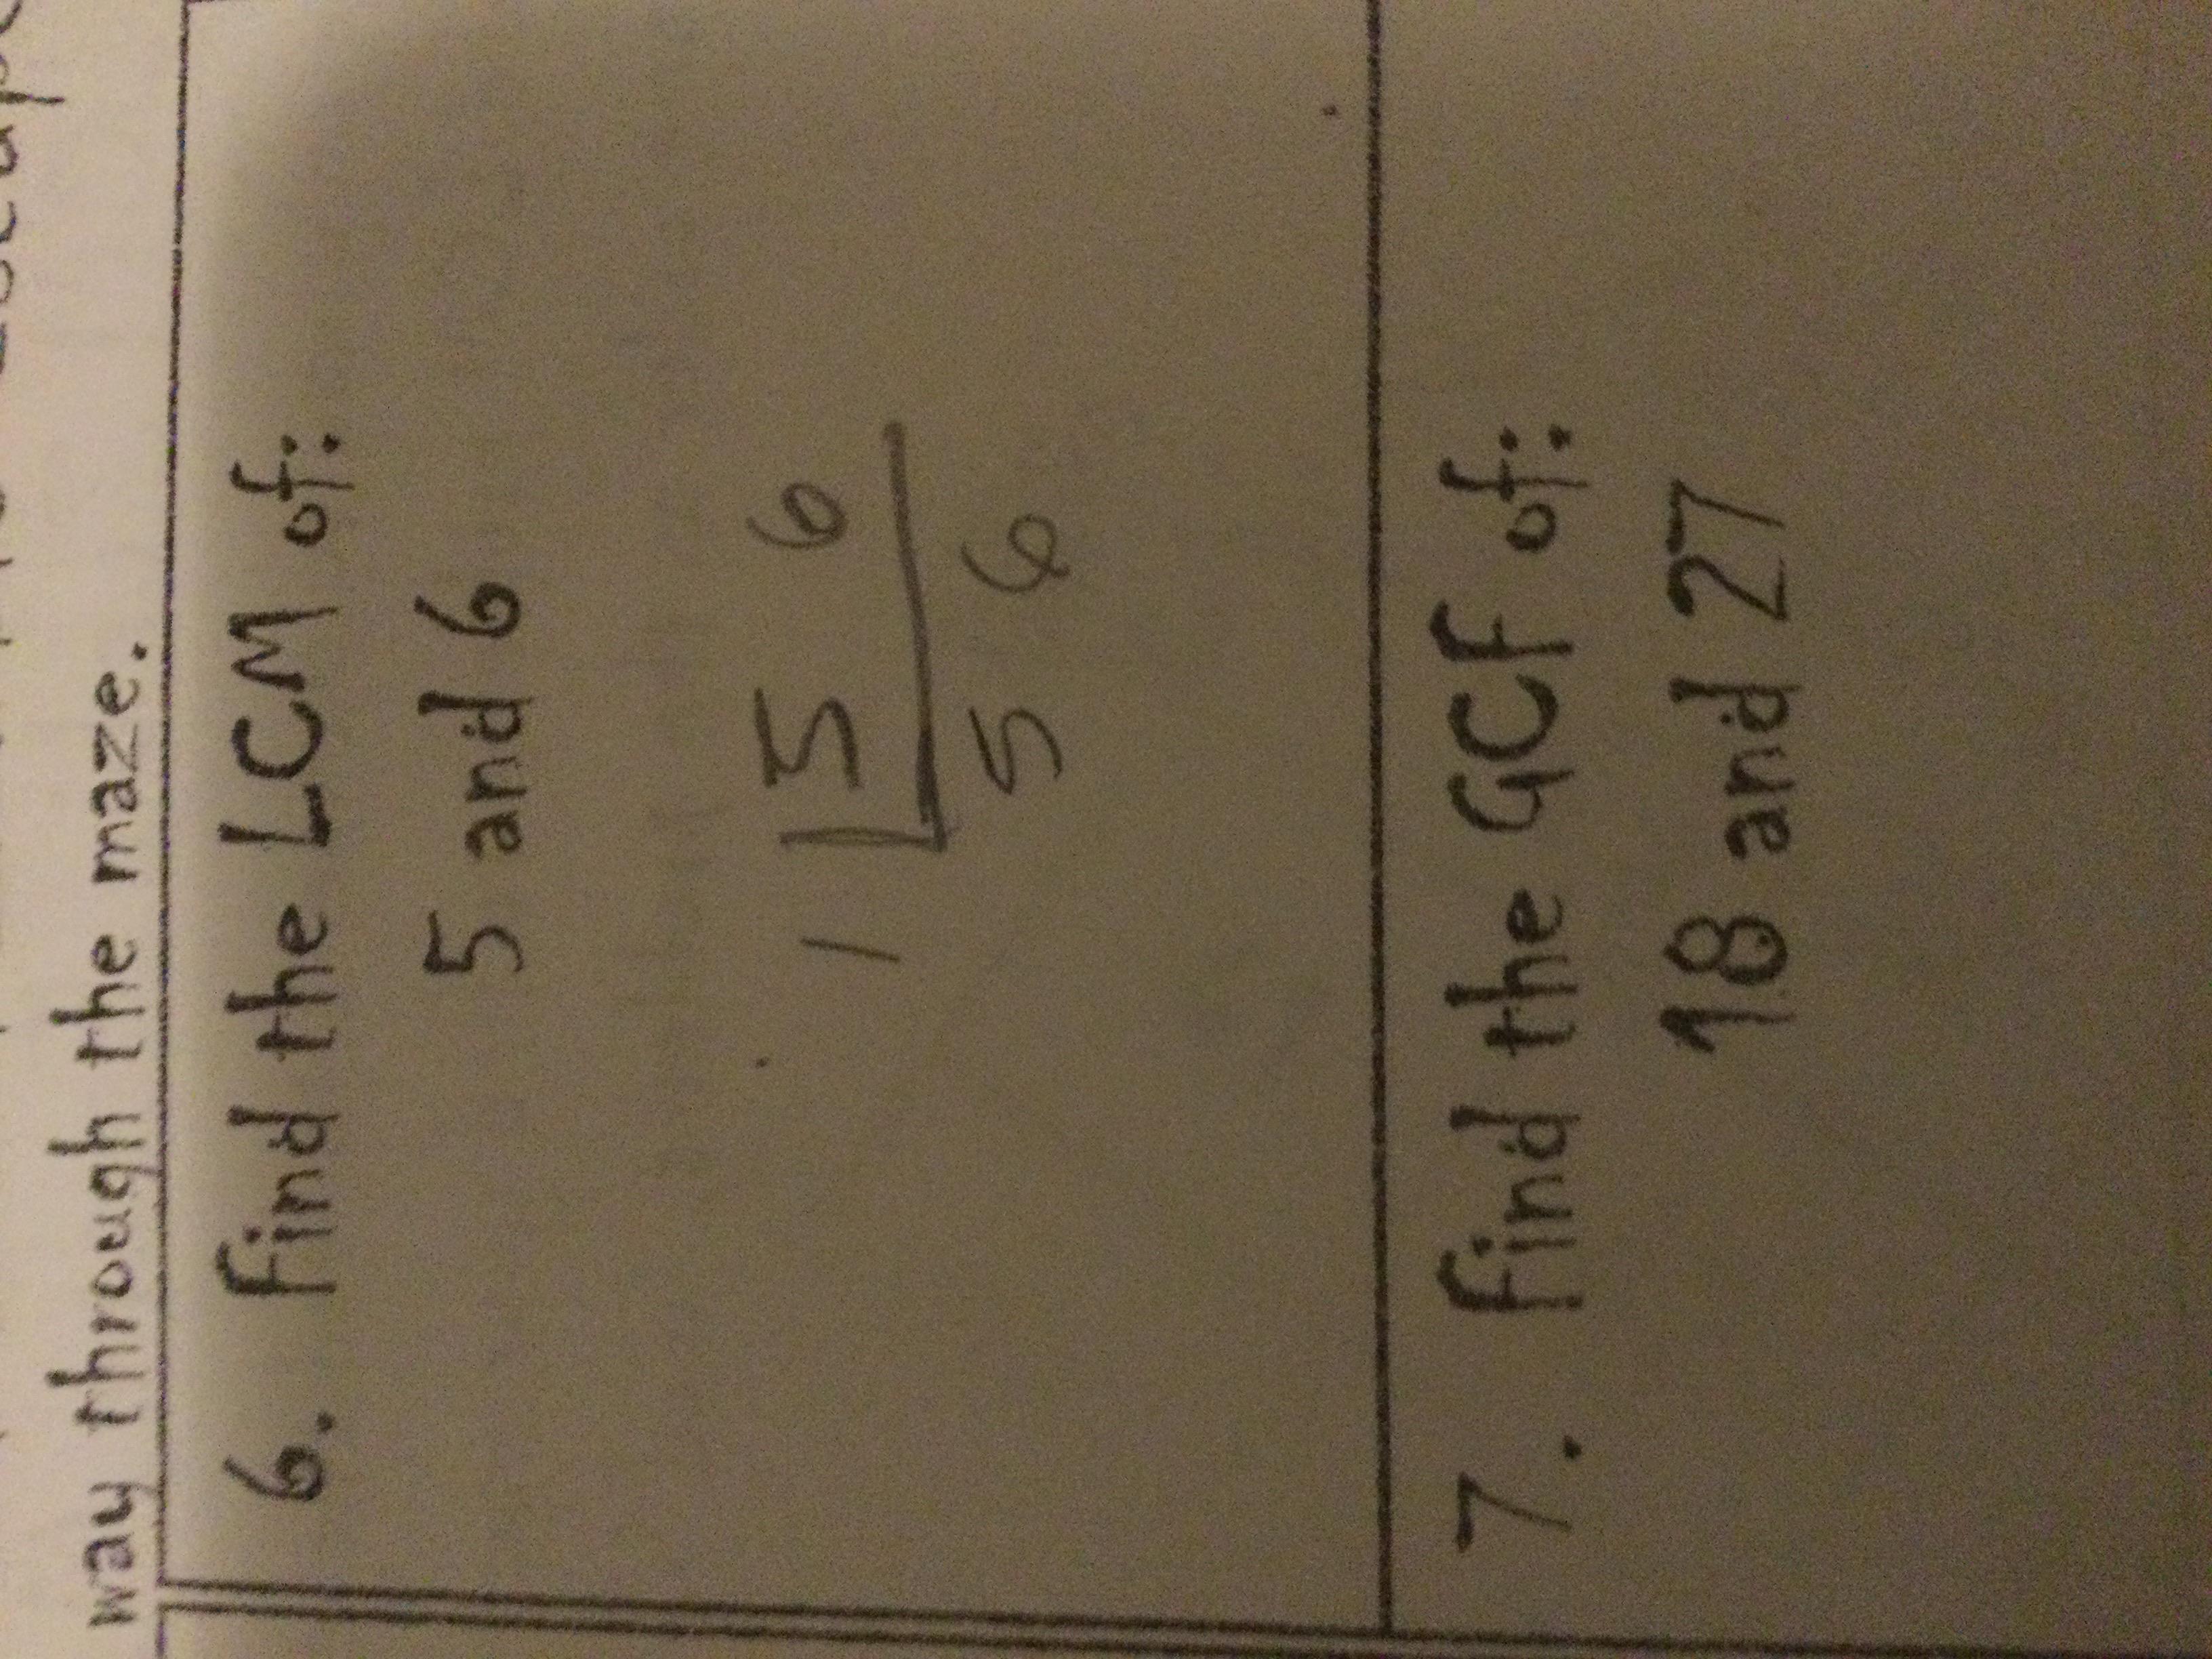 way through the maze.
6. Find the LCM of:
5 and 6
1 5 6
5 6
7. Find the GCF of:
18 and 27